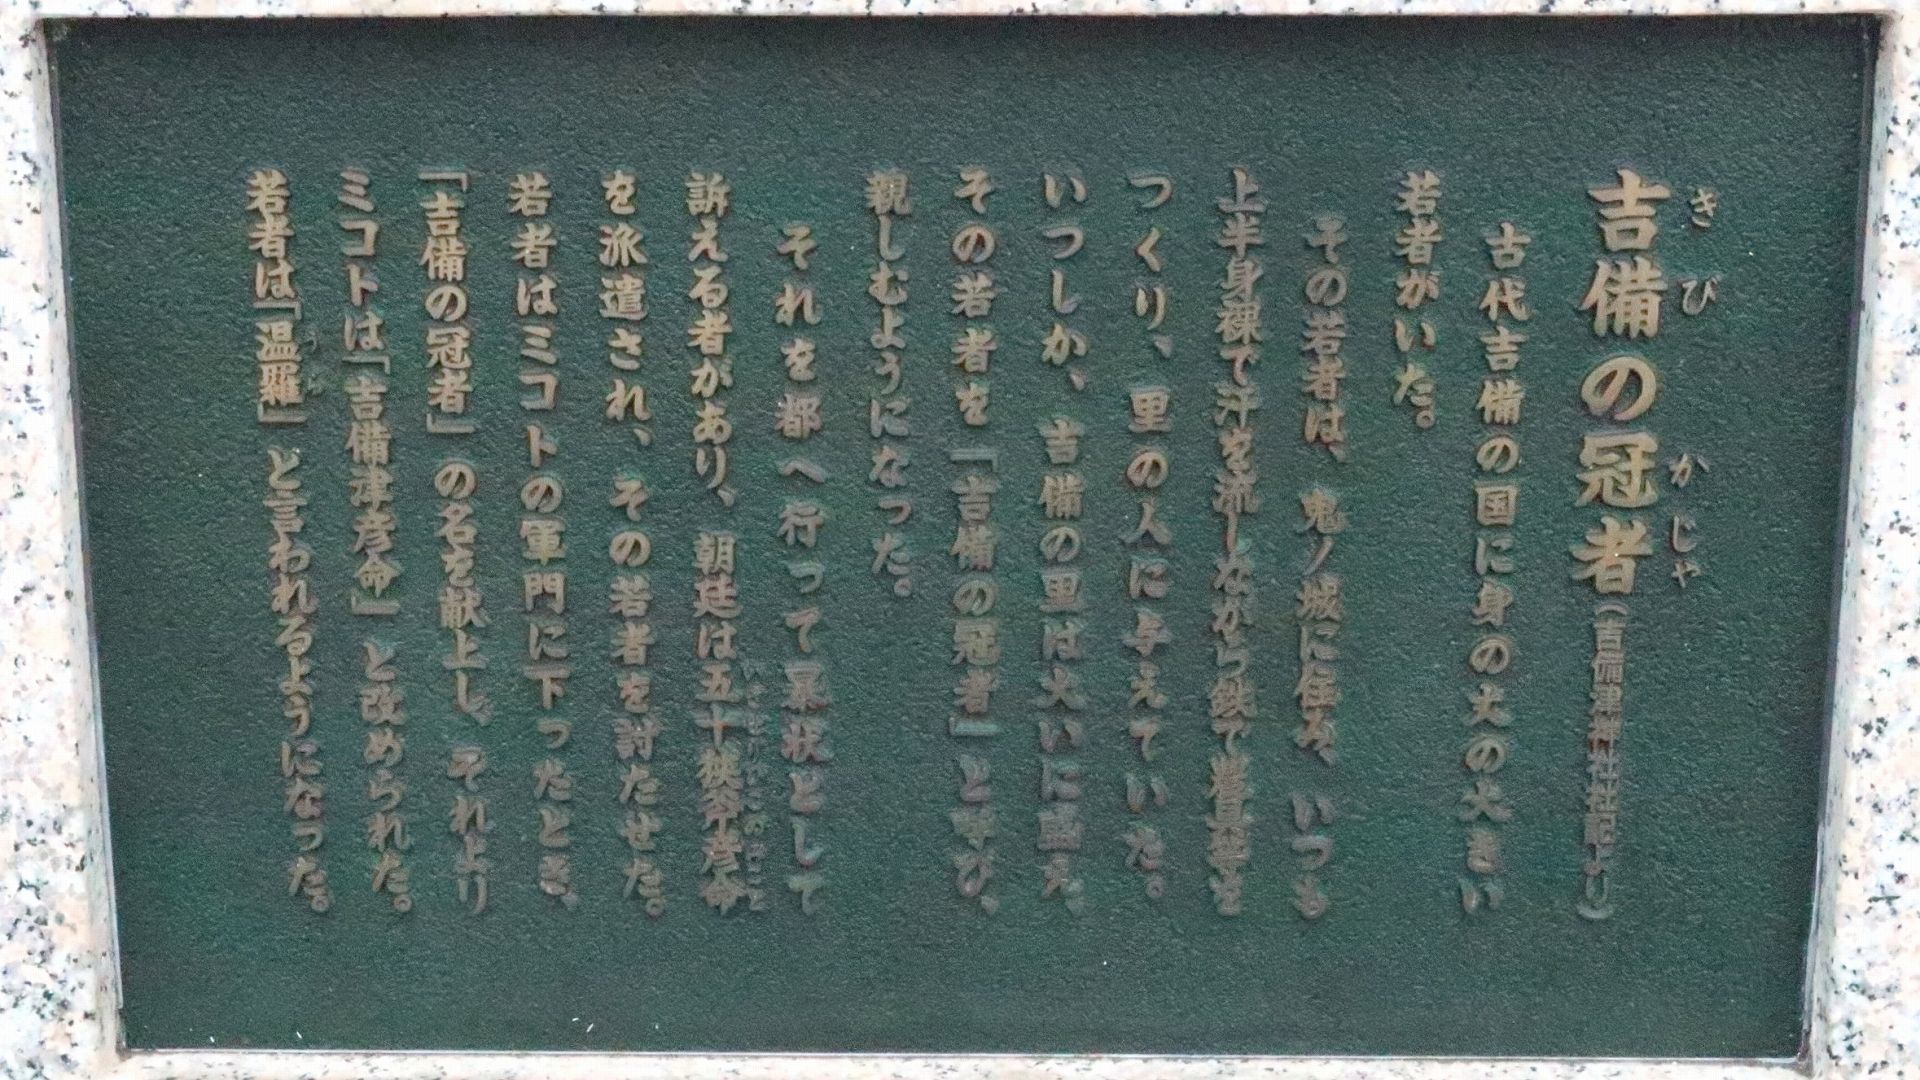 吉備の冠者（吉備津神社社記より）
きび かじゃ
古代吉備の国に身の丈の大きい
若者がいた。
その若者は、鬼ノ城に住み、いつも
上半身裸で汗を流しながら鉄で農具を
つくり、里の人に与えていた。
いつしか、吉備の里は大いに栄え、
その若者を「吉備の冠者」と呼び、
親しむようになった。
それを都へ行って暴状として
訴える者があり、朝廷は五十狭芹彦命
いさせりひこのみこと
を派遣され、その若者を討たせた。
若者はミコトの軍門に下ったとき、
「吉備の冠者」の名を献上し、それより
ミコトは「吉備津彦命」と改められた。
若者は「温羅」と言われるようになった。
うら